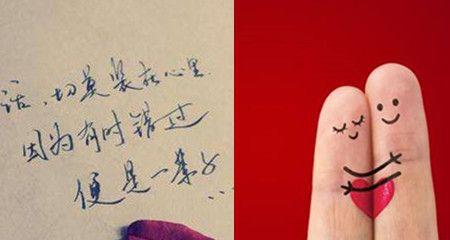 话,切莫装在心里
因为有时错过
便是一辈子...